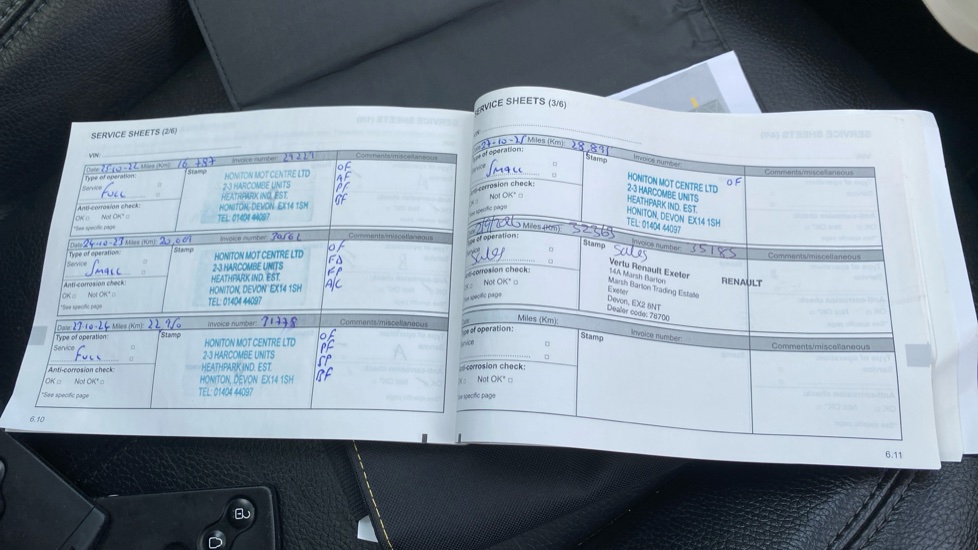 SERVICE SHEETS (2/6)
VIN:
Date 25-10-22 Miles (Km): 16 787 Invoice number: 29229
Comments/miscellaneous
Type of operation:
Stamp
Service
FULL
Anti-corrosion check:
OK Not OK*
*See specific page
HONITON MOT CENTRE LTD
2-3 HARCOMBE UNITS
HEATHPARK IND. EST.
HONITON, DEVON EX14 1SH
TEL: 01404 44097
OF
AF
PF
BF
Date 24-10-23 Miles (Km): 20,009 Invoice number:
Comments/miscellaneous
Type of operation:
Stamp
Service
SMALL
Anti-corrosion check:
OK Not OK*
*See specific page
HONITON MOT CENTRE LTD
2-3 HARCOMBE UNITS
HEATHPARK IND. EST.
HONITON, DEVON EX14 1SH
TEL: 01404 44097
OF
A/C
Date 27-10-24 Miles (Km): Invoice number: 31778
Comments/miscellaneous
Type of operation:
Stamp
Service
FULL
Anti-corrosion check:
OK Not OK*
*See specific page
HONITON MOT CENTRE LTD
2-3 HARCOMBE UNITS
HEATHPARK IND. EST.
HONITON, DEVON EX14 1SH
TEL: 01404 44097
OF
PF
BF
6.10
SERVICE SHEETS (3/6)
27-10-25 Miles (Km): 28,891 Invoice number:
Comments/miscellaneous
Type of operation:
Stamp
SMALL
Not OK*
HONITON MOT CENTRE LTD
2-3 HARCOMBE UNITS
HEATHPARK IND. EST.
HONITON, DEVON EX14 1SH
TEL: 01404 44097
OF
Miles (Km): Invoice number: 35183
Comments/miscellaneous
Stamp Sales
Sales
Not OK*
Vertu Renault Exeter
14A Marsh Barton
Marsh Barton Trading Estate
Exeter
Devon, EX2 8NT
Dealer code: 78700
RENAULT
Miles (Km): Invoice number:
Comments/miscellaneous
of operation:
Stamp
Not OK*
6.11